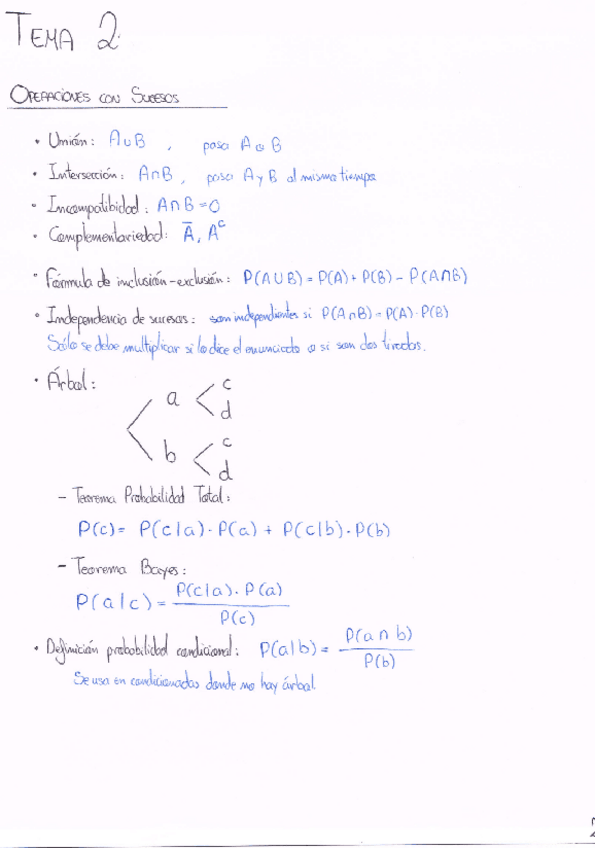 TEMA 2.
OPERACIONES CON SUCESOS
• Unión: A∪B , pasa A o B
• Intersección: A∩B , pasa A y B al mismo tiempo
• Incompatibidad: A∩B = 0
• Complementariedad: A̅, Aᶜ
• Fórmula de inclusión-exclusión: P(A∪B) = P(A) + P(B) - P(A∩B)
• Independencia de sucesos: son independientes si P(A∩B) = P(A)·P(B)
Sólo se debe multiplicar si lo dice el enunciado o si son dos tiradas.
• Árbol:
a
c
d
b
c
d
- Teorema Probabilidad Total:
P(c) = P(c|a)·P(a) + P(c|b)·P(b)
- Teorema Bayes:
P(a|c) = P(c|a)·P(a) / P(c)
• Definición probabilidad condicional: P(a|b) = P(a∩b) / P(b)
Se usa en condicionadas donde no hay árbol.
2